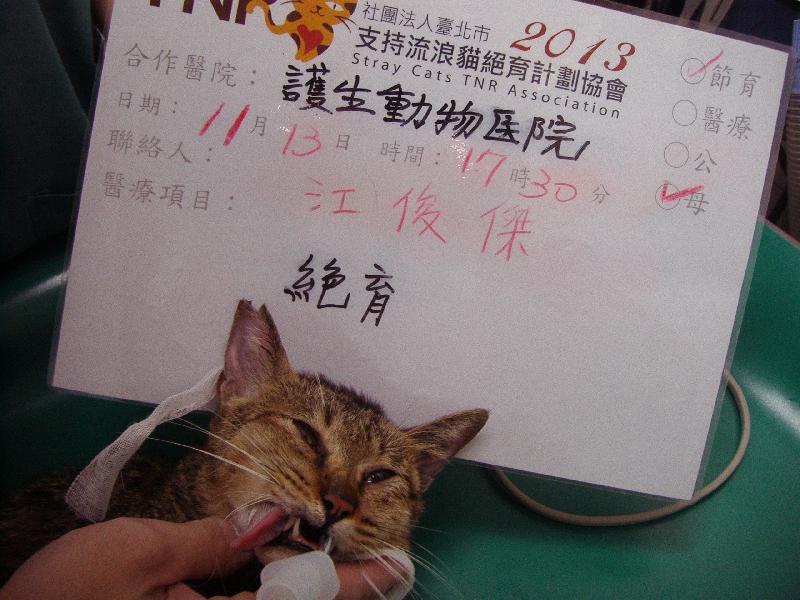 TNR 社團法人臺北市 2013
支持流浪貓絕育計劃協會
Stray Cats TNR Association
合作醫院： 護生動物医院
日期： 11月13日 時間： 17時30分
聯絡人： 江俊傑
醫療項目：
絕育
節育
醫療
公
母